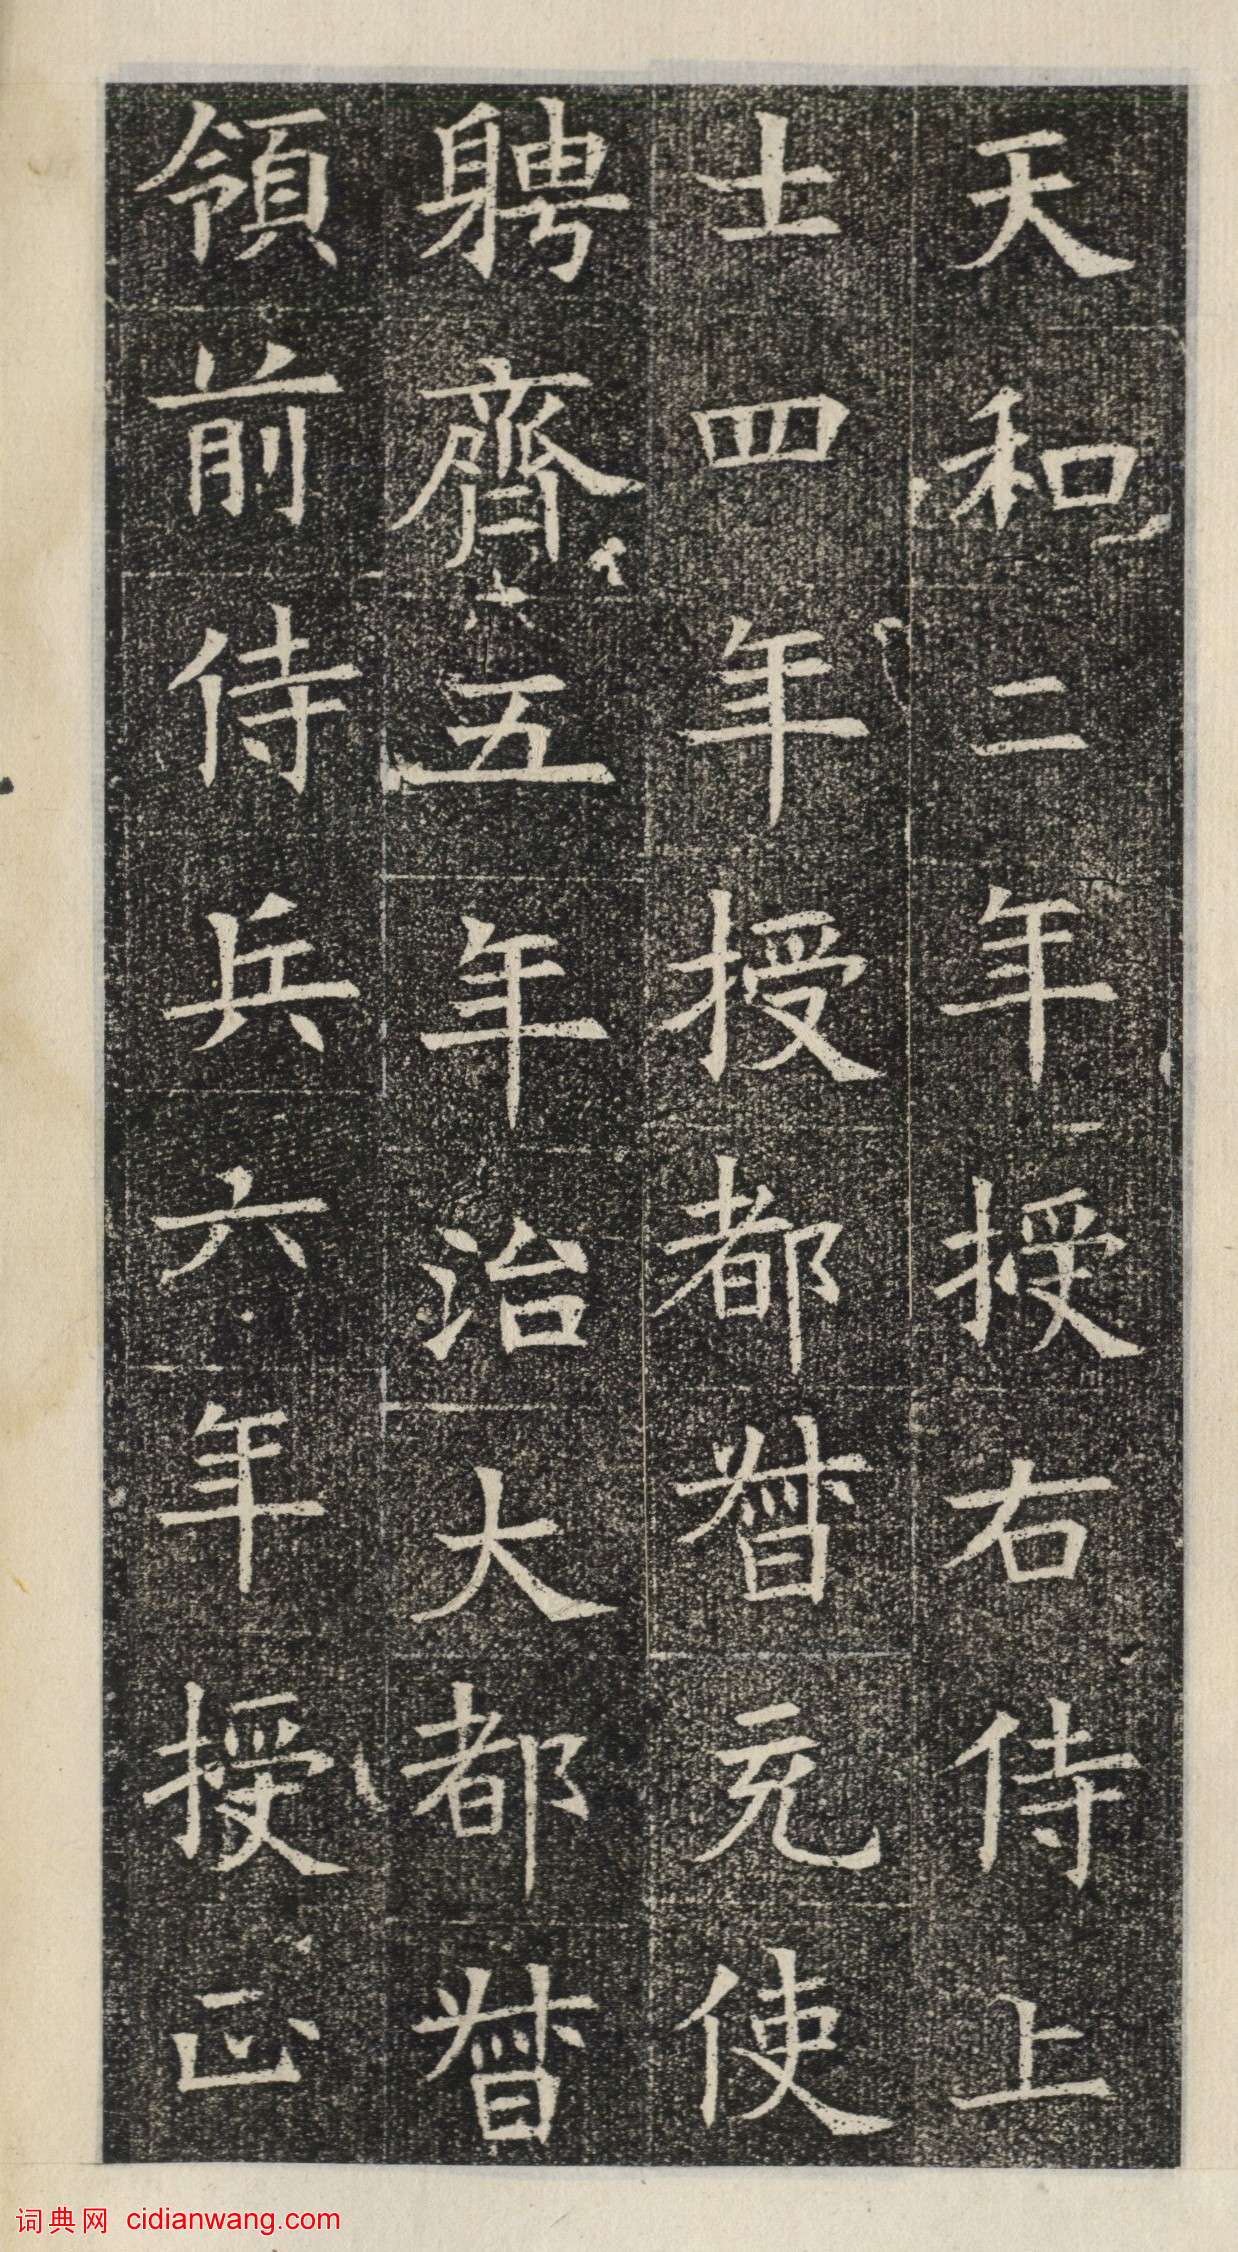 天和二年授右侍上
士四年授都督充使
聘齊五年治大都督
領前侍兵六年授正
词典网 cidianwang.com